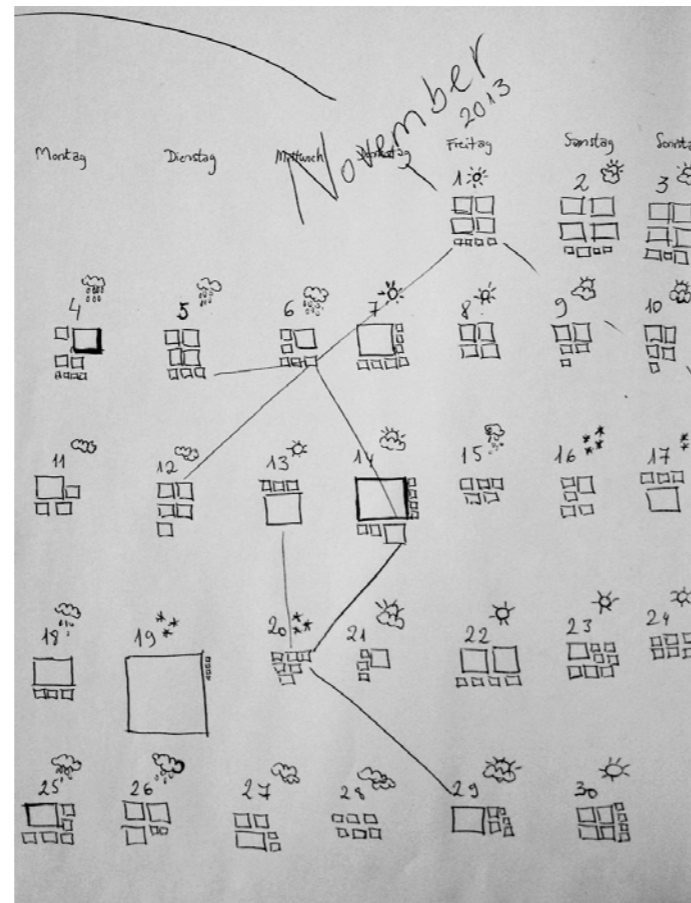 November
2013
Montag Dienstag Mittwoch Freitag Samstag Sonnta
1 2 3
4 5 6 7 8 9 10
11 12 13 14 15 16 17
18 19 20 21 22 23 24
25 26 27 28 29 30